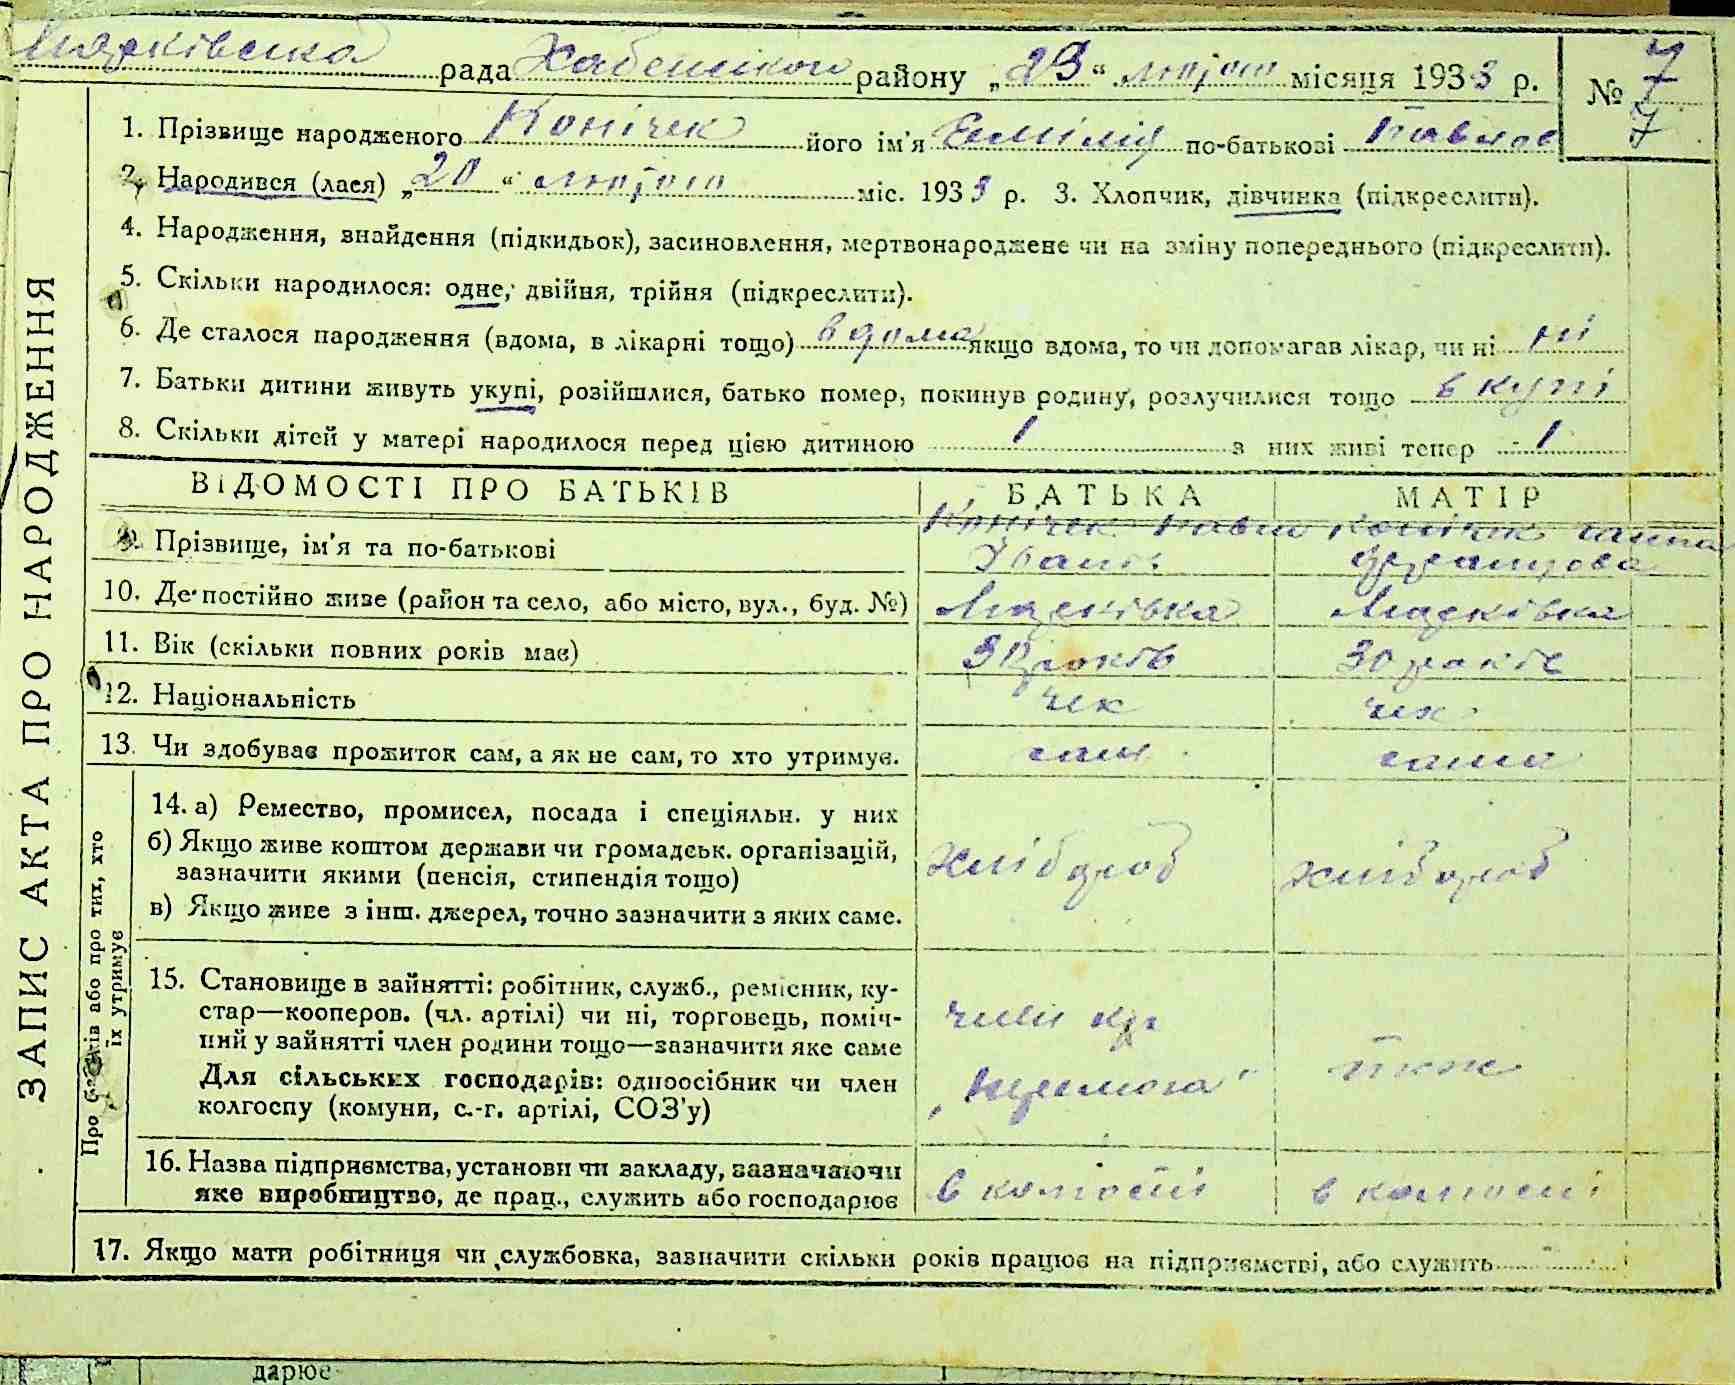 рада Хабенського району „23“ лютого місяця 1933 р. № 7
7
1. Прізвище народженого Конічек його ім'я Емілія по-батькові Павлов
2. Народився (лася) „20“ лютого міс. 1933 р. 3. Хлопчик, дівчинка (підкреслити).
4. Народження, знайдення (підкидьок), засиновлення, мертвонароджене чи на зміну попереднього (підкреслити).
5. Скільки народилося: одне, двійня, трійня (підкреслити).
6. Де сталося народження (вдома, в лікарні тощо) вдома якщо вдома, то чи допомагав лікар, чи ні ні
7. Батьки дитини живуть укупі, розійшлися, батько помер, покинув родину, розлучилися тощо в купі
8. Скільки дітей у матері народилося перед цією дитиною 1 з них живі тепер 1
ЗАПИС АКТА ПРО НАРОДЖЕННЯ
ВІДОМОСТІ ПРО БАТЬКІВ БАТЬКА МАТІР
9. Прізвище, ім'я та по-батькові Конічек Павло Конічек Ганна
10. Де постійно живе (район та село, або місто, вул., буд. №)
11. Вік (скільки повних років має) років 30 років
12. Національність чех чех
13. Чи здобуває прожиток сам, а як не сам, то хто утримує. сам сама
Про батьків або про тих, хто
їх утримує
14. а) Ремество, промисел, посада і спеціяльн. у них
б) Якщо живе коштом держави чи громадськ. організацій,
зазначити якими (пенсія, стипендія тощо) хлібороб хлібороб
в) Якщо живе з інш. джерел, точно зазначити з яких саме.
15. Становище в зайнятті: робітник, служб., ремісник, ку-
стар—кооперов. (чл. артілі) чи ні, торговець, поміч- член
ний у зайнятті член родини тощо—зазначити яке саме
Для сільських господарів: одноосібник чи член теж
колгоспу (комуни, с.-г. артілі, СОЗ'у)
16. Назва підприємства, установи чи закладу, зазначаючи
яке виробництво, де прац., служить або господарює в колгоспі в колгоспі
17. Якщо мати робітниця чи службовка, зазначити скільки років працює на підприємстві, або служить
дарює